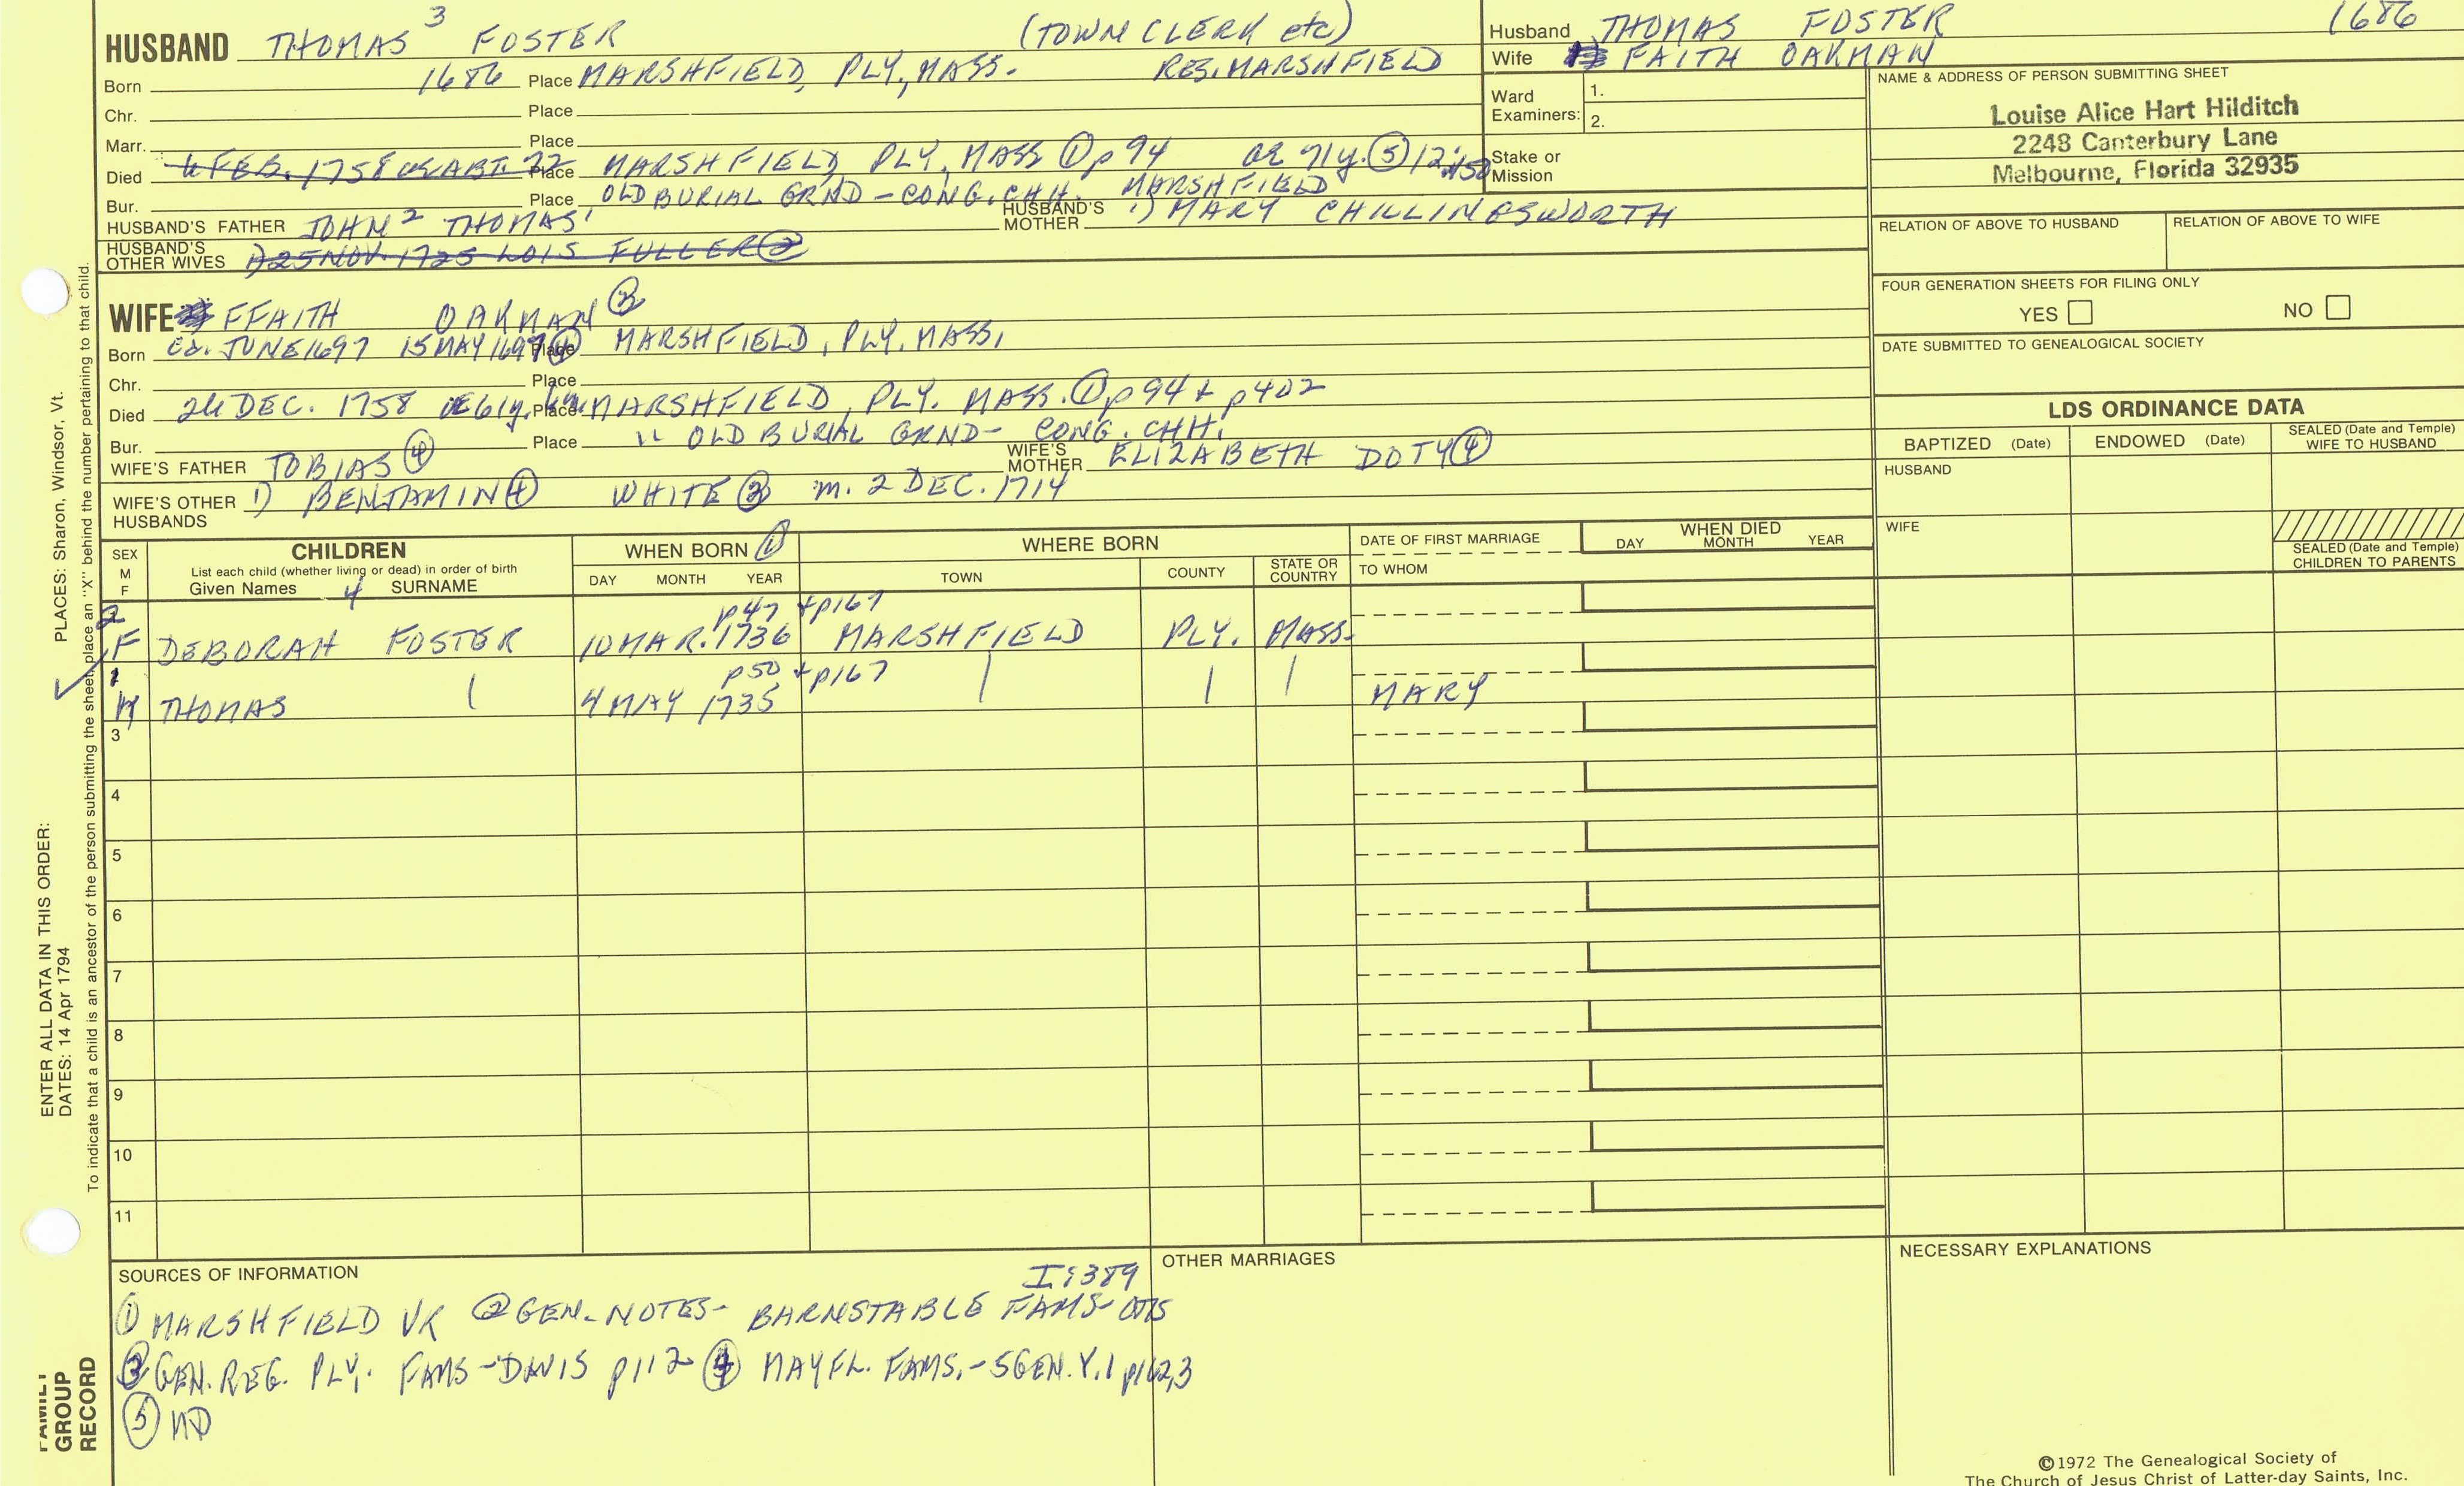 HUSBAND THOMAS 3 FOSTER (TOWN CLERK etc)
Born 1686 Place MARSHFIELD, PLY, MASS. RES. MARSHFIELD
Chr. Place
Marr. Place
Died 6 FEB. 1758 Place MARSHFIELD PLY, MASS ① p 94 71y. ⑤
Bur. Place OLD BURIAL GRND - CONG. CHH. MARSHFIELD
HUSBAND'S FATHER JOHN 2 THOMAS' HUSBAND'S MOTHER 1) MARY CHILLINGSWORTH
HUSBAND'S OTHER WIVES 1) 25 NOV. 1725 LOIS FULLER ②
Husband THOMAS FOSTER 1686
Wife FAITH OAKMAN
Ward Examiners: 1.
2.
Stake or Mission
NAME & ADDRESS OF PERSON SUBMITTING SHEET
Louise Alice Hart Hilditch
2248 Canterbury Lane
Melbourne, Florida 32935
RELATION OF ABOVE TO HUSBAND RELATION OF ABOVE TO WIFE
FOUR GENERATION SHEETS FOR FILING ONLY
YES NO
DATE SUBMITTED TO GENEALOGICAL SOCIETY
WIFE FFAITH OAKMAN ③
Born ca. JUNE 1697 15 MAY 1697 ④ Place MARSHFIELD, PLY. MASS.
Chr. Place
Died 24 DEC. 1758 61y. Place MARSHFIELD, PLY. MASS. ① p 94 + p 402
Bur. Place " OLD BURIAL GRND- CONG. CHH.
WIFE'S FATHER TOBIAS ④ WIFE'S MOTHER ELIZABETH DOTY ④
WIFE'S OTHER HUSBANDS 1) BENJAMIN ④ WHITE ③ m. 2 DEC. 1714
LDS ORDINANCE DATA
BAPTIZED (Date) ENDOWED (Date) SEALED (Date and Temple) WIFE TO HUSBAND
HUSBAND
WIFE
SEALED (Date and Temple) CHILDREN TO PARENTS
SEX M F CHILDREN WHEN BORN ① WHERE BORN DATE OF FIRST MARRIAGE WHEN DIED
List each child (whether living or dead) in order of birth
Given Names 4 SURNAME DAY MONTH YEAR TOWN COUNTY STATE OR COUNTRY TO WHOM DAY MONTH YEAR
2 p 47 + p 167
F DEBORAH FOSTER 10 MAR. 1736 MARSHFIELD PLY. MASS.
1 p 50 + p 167
M THOMAS 4 MAY 1735 MARY
3
4
5
6
7
8
9
10
11
SOURCES OF INFORMATION I:389
① MARSHFIELD VR ② GEN. NOTES- BARNSTABLE FAMS- OTIS
③ GEN. REG. PLY. FAMS - DAVIS p 112 ④ MAYFL. FAMS. - 5 GEN. V. 1 p 162,3
⑤ ND
OTHER MARRIAGES
NECESSARY EXPLANATIONS
©1972 The Genealogical Society of
The Church of Jesus Christ of Latter-day Saints, Inc.
ENTER ALL DATA IN THIS ORDER:
DATES: 14 Apr 1794
PLACES: Sharon, Windsor, Vt.
To indicate that a child is an ancestor of the person submitting the sheet, place an "X" behind the number pertaining to that child.
FAMILY
GROUP
RECORD